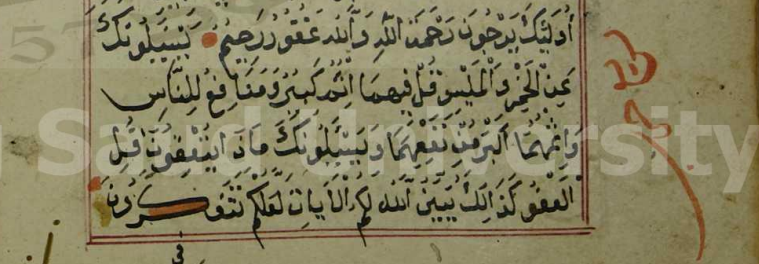 أُولَٰئِكَ يَرْجُونَ رَحْمَتَ اللَّهِ وَاللَّهُ غَفُورٌ رَحِيمٌ يَسْئَلُونَكَ
عَنِ الْخَمْرِ وَالْمَيْسِرِ قُلْ فِيهِمَا إِثْمٌ كَبِيرٌ وَمَنَافِعُ لِلنَّاسِ
وَإِثْمُهُمَا أَكْبَرُ مِنْ نَفْعِهِمَا وَيَسْئَلُونَكَ مَاذَا يُنْفِقُونَ قُلِ
الْعَفْوَ كَذَٰلِكَ يُبَيِّنُ اللَّهُ لَكُمُ الْآيَاتِ لَعَلَّكُمْ تَتَفَكَّرُونَ
في
Saud University